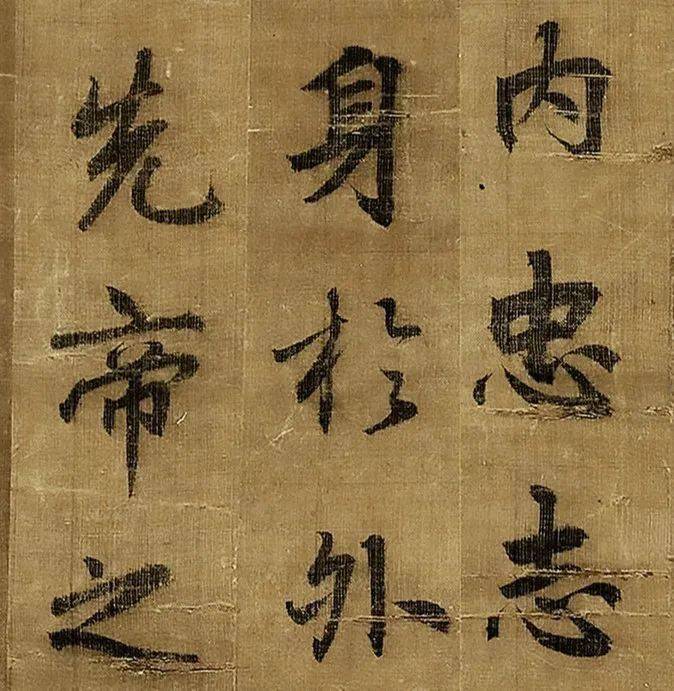 内忠志
身於外
先帝之